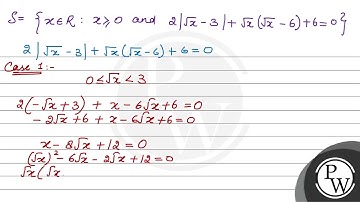 S= {x∈R : x≥0 and 2|√x-3|+√x(√x-6)+6=0}
2|√x-3|+√x(√x-6)+6=0
Case 1:-
0≤√x<3
2(-√x+3) + x-6√x+6=0
-2√x+6 + x-6√x+6=0
x-8√x+12=0
(√x)²-6√x-2√x+12=0
√x(√x
P
W